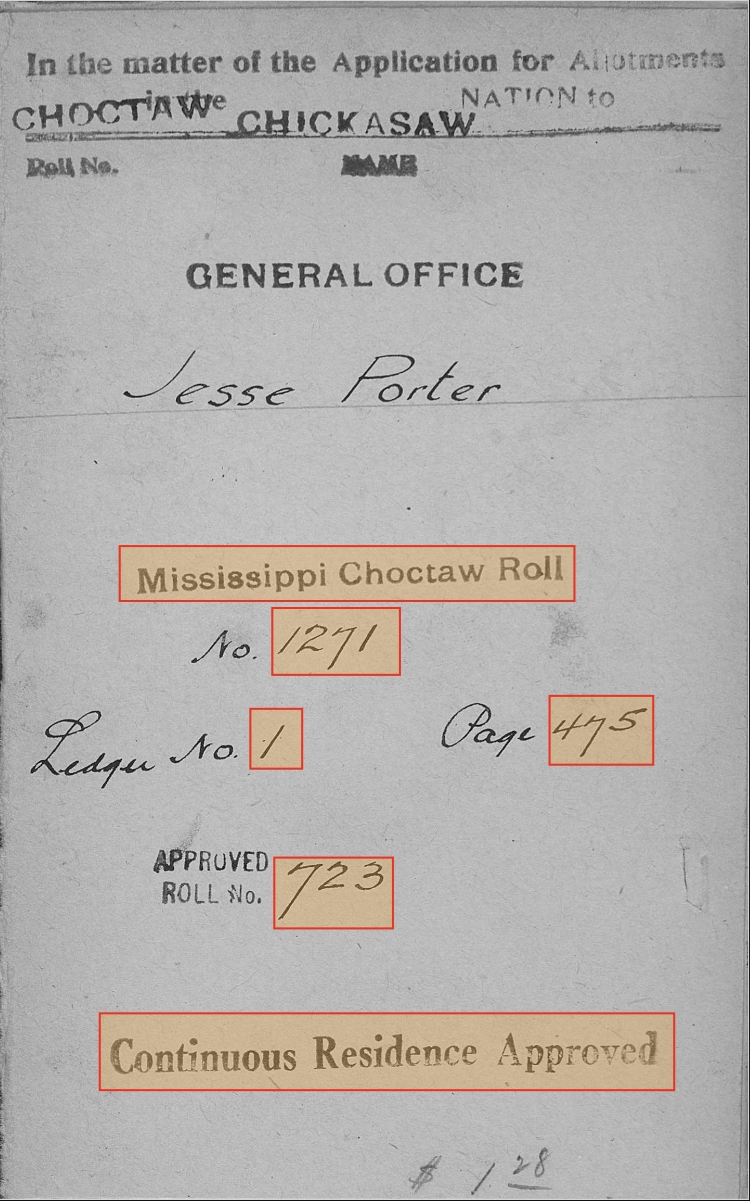 In the matter of the Application for Allotments
in the NATION to
CHOCTAW CHICKASAW
Roll No. NAME
GENERAL OFFICE
Jesse Porter
Mississippi Choctaw Roll
No. 1271
Ledger No. 1 Page 475
APPROVED
ROLL No. 723
Continuous Residence Approved
$ 1.28